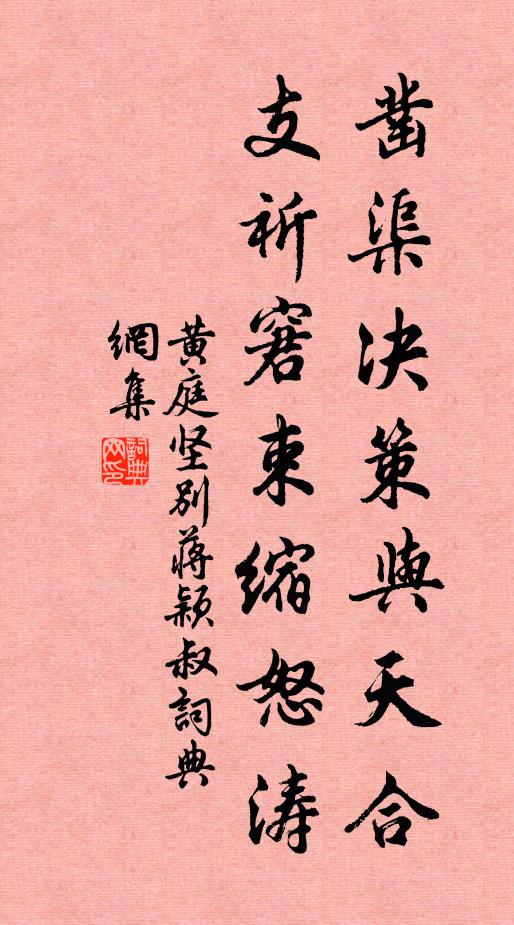 凿渠决策與天合
支祈窘束缩怒涛
黄庭坚别蒋颖叔詞典
網集
詞典网印